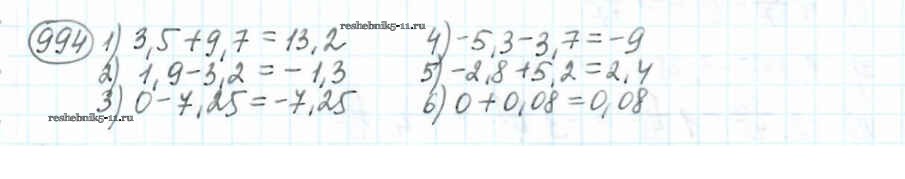 reshebnik5-11.ru
994 1) 3,5+9,7=13,2 4) -5,3-3,7=-9
2) 1,9-3,2=-1,3 5) -2,8+5,2=2,4
3) 0-7,25=-7,25 6) 0+0,08=0,08
reshebnik5-11.ru